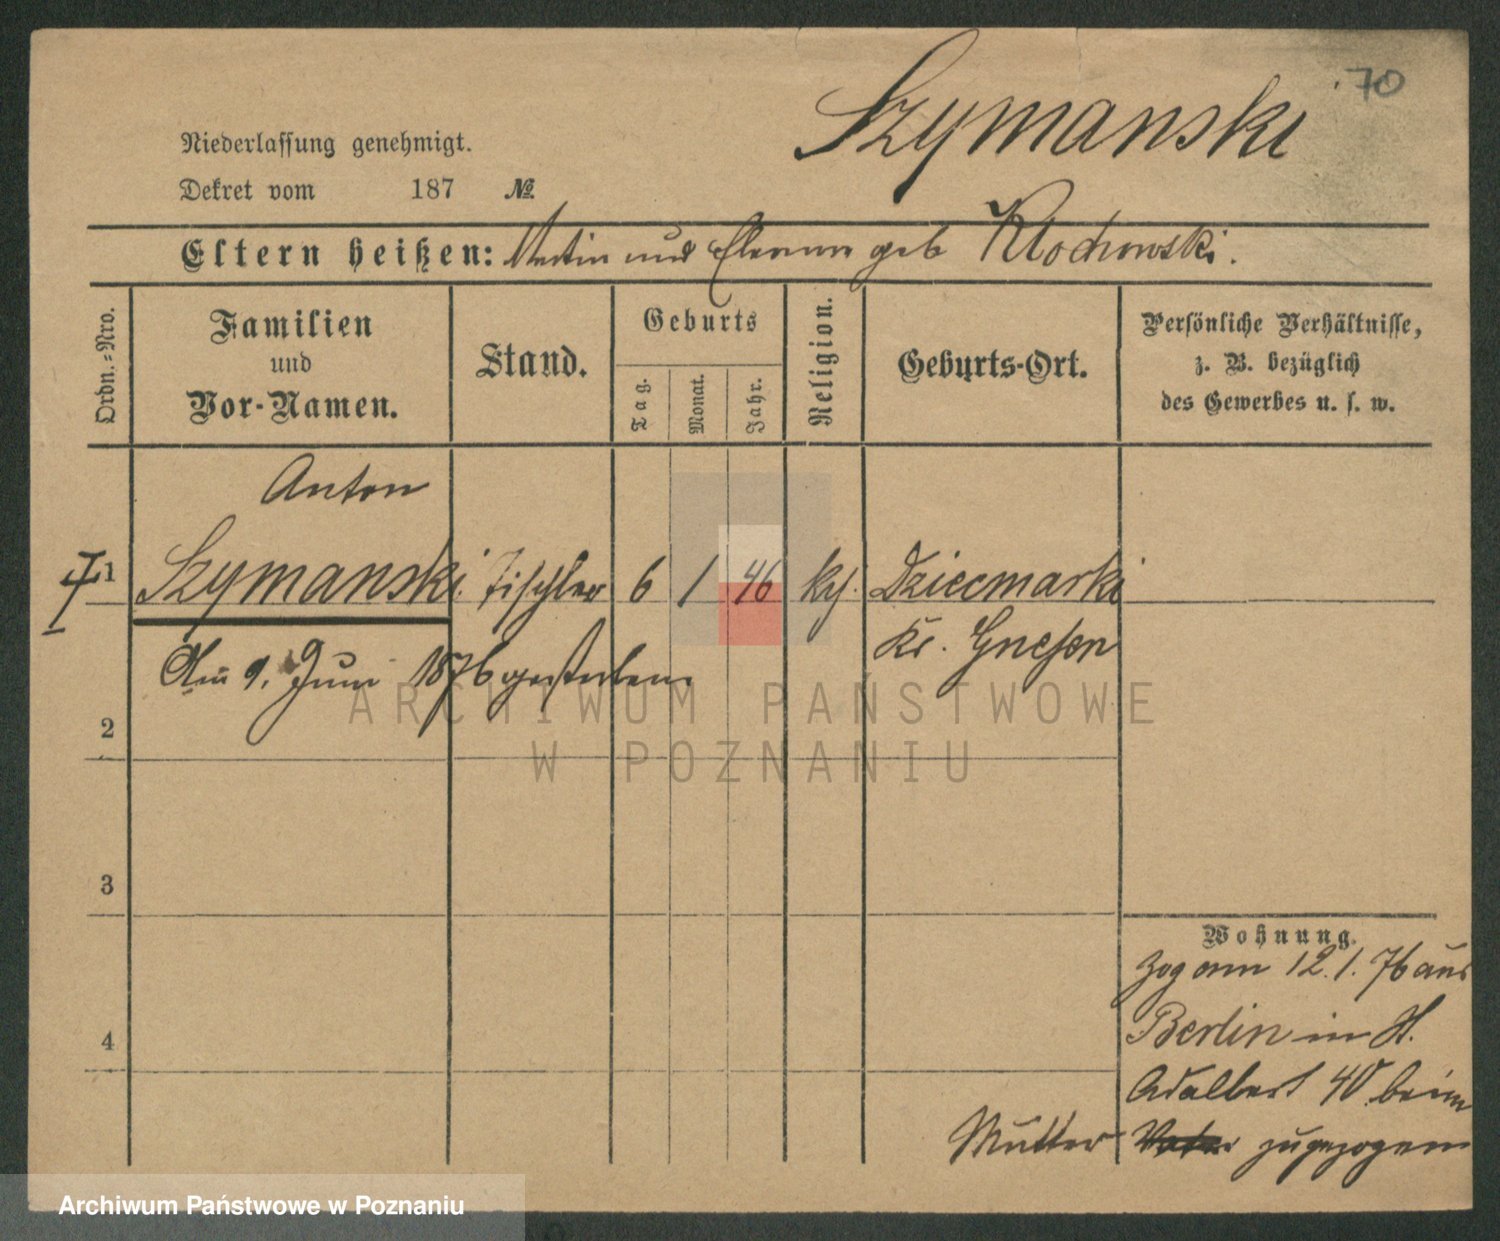 70
Szymanski
Niederlassung genehmigt.
Dekret vom 187 №
Eltern heißen: Martin und geb Klochowski.
Ordn.=Nro.
Familien
und
Vor-Namen.
Stand.
Geburts
Tag.
Monat.
Jahr.
Religion.
Geburts-Ort.
Persönliche Verhältnisse,
z. B. bezüglich
des Gewerbes u. s. w.
Anton
1 Szymanski. Tischler 6 1 46 Dziecmarki
Kr. Gnesen
Am 9. Juni 1876 gestorben.
2
3
4
Wohnung.
Zog am 12.1.76 aus
Berlin in
Adalbert 40 beim
Mutter Vater zugezogen
ARCHIWUM PAŃSTWOWE
W POZNANIU
Archiwum Państwowe w Poznaniu